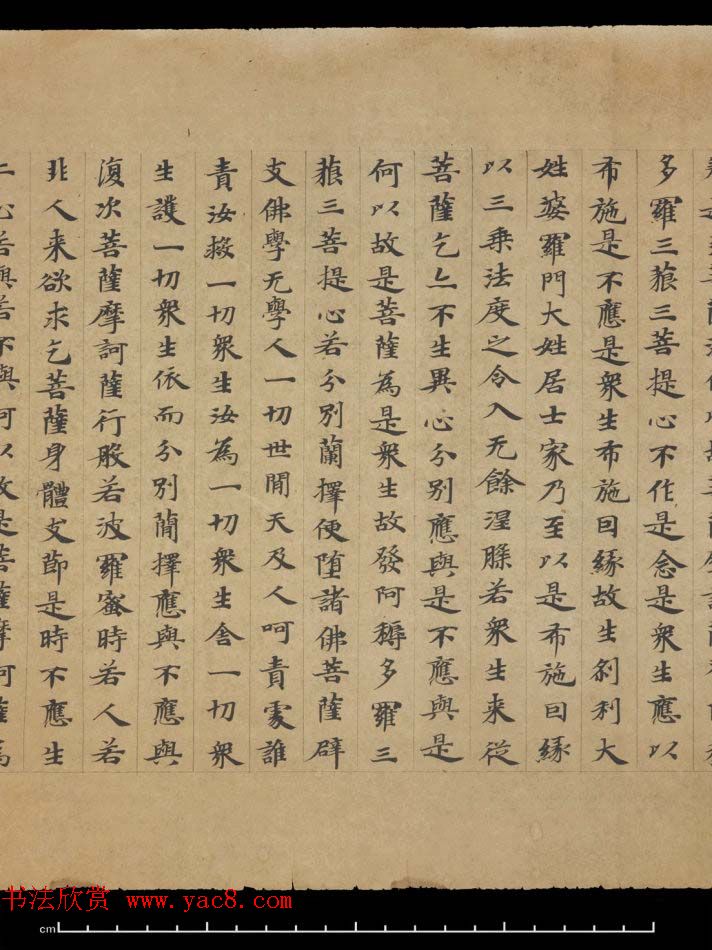 多羅三藐三菩提心不作是念是衆生應以
布施是不應是衆生布施囙緣故生剎利大
姓婆羅門大姓居士家乃至以是布施囙緣
以三乗法度之令入无餘涅槃若衆生来従
菩薩乞亦不生異心分別應與是不應與是
何以故是菩薩為是衆生故發阿耨多羅三
藐三菩提心若分別蕳擇便堕諸佛菩薩辟
支佛學无學人一切世間天及人呵責處誰
責汝救一切衆生汝為一切衆生舎一切衆
生護一切衆生依而分別蕳擇應與不應與
復次菩薩摩訶薩行般若波羅蜜時若人若
非人来欲求乞菩薩身體支節是時不應生
二心若與若不與何以故是菩薩摩訶薩為
书法欣赏 www.yac8.com
cm